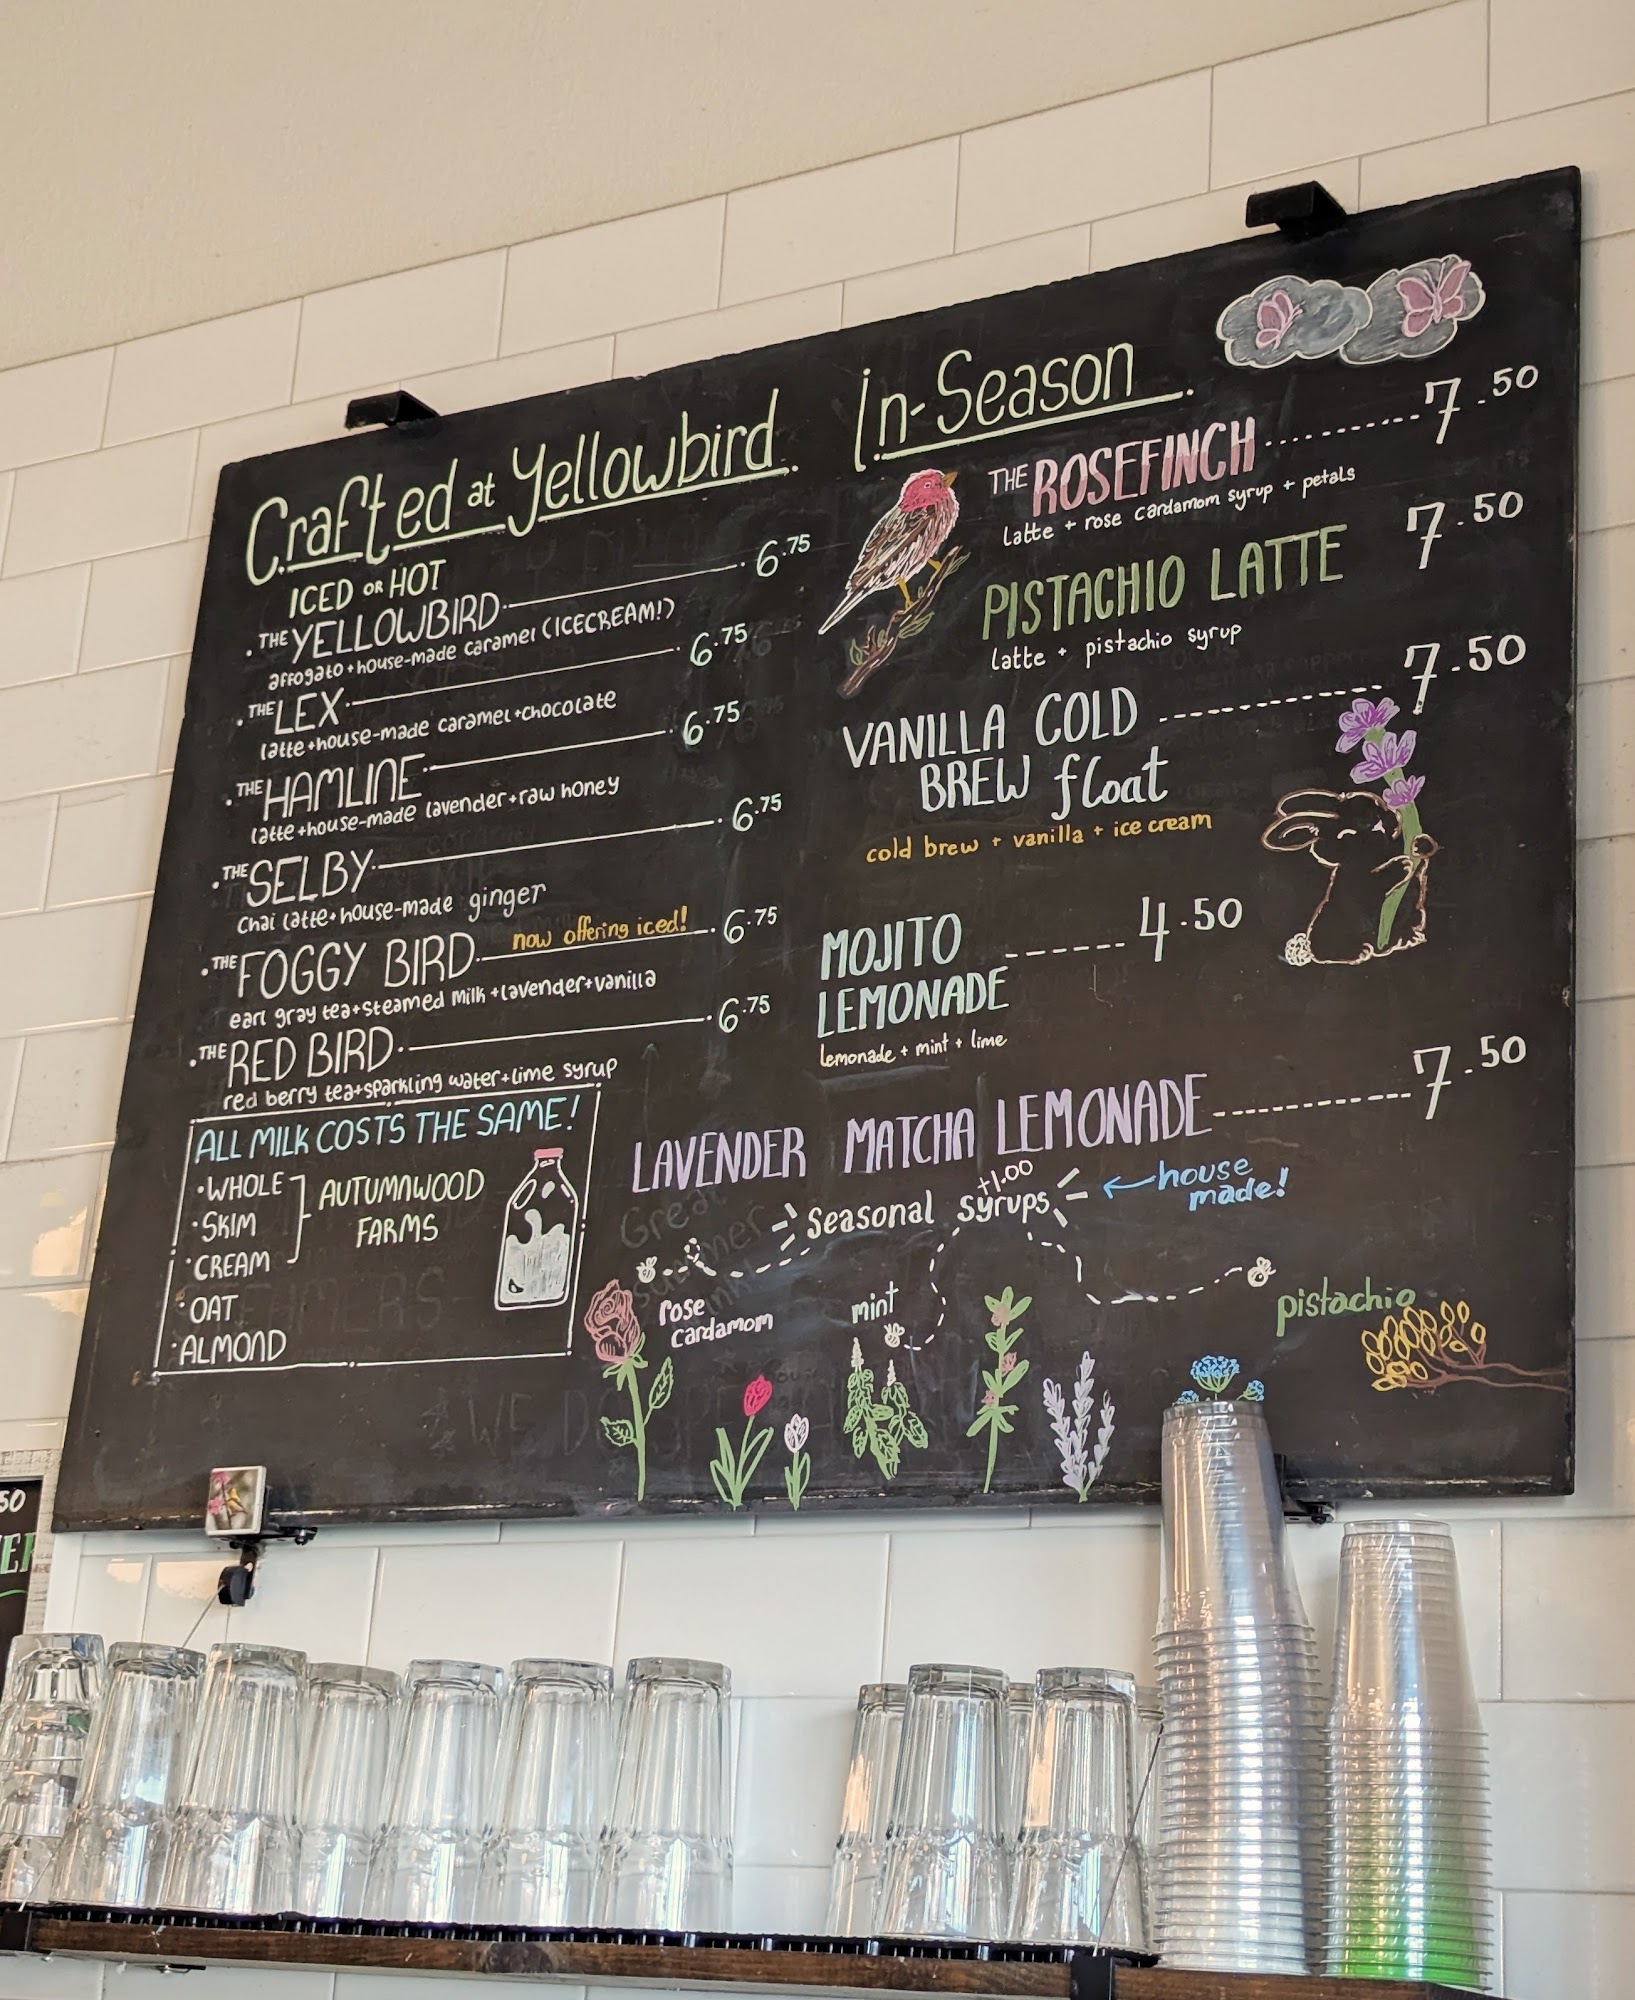 Crafted at Yellowbird
ICED OR HOT
• THE YELLOWBIRD 6.75
affogato + house-made caramel (ICECREAM!)
• THE LEX 6.75
latte + house-made caramel + chocolate
• THE HAMLINE 6.75
latte + house-made lavender + raw honey
• THE SELBY 6.75
Chai latte + house-made ginger
• THE FOGGY BIRD now offering iced! 6.75
earl gray tea + steamed milk + lavender + vanilla
• THE RED BIRD 6.75
red berry tea + sparkling water + lime syrup
ALL MILK COSTS THE SAME!
• WHOLE
• SKIM
• CREAM
AUTUMNWOOD
FARMS
• OAT
• ALMOND
In-Season
THE ROSEFINCH 7.50
latte + rose cardamom syrup + petals
PISTACHIO LATTE 7.50
latte + pistachio syrup
VANILLA COLD 7.50
BREW float
cold brew + vanilla + ice cream
MOJITO
LEMONADE 4.50
lemonade + mint + lime
LAVENDER MATCHA LEMONADE 7.50
Seasonal syrups +1.00
house
made!
rose
cardamom
mint
pistachio
50